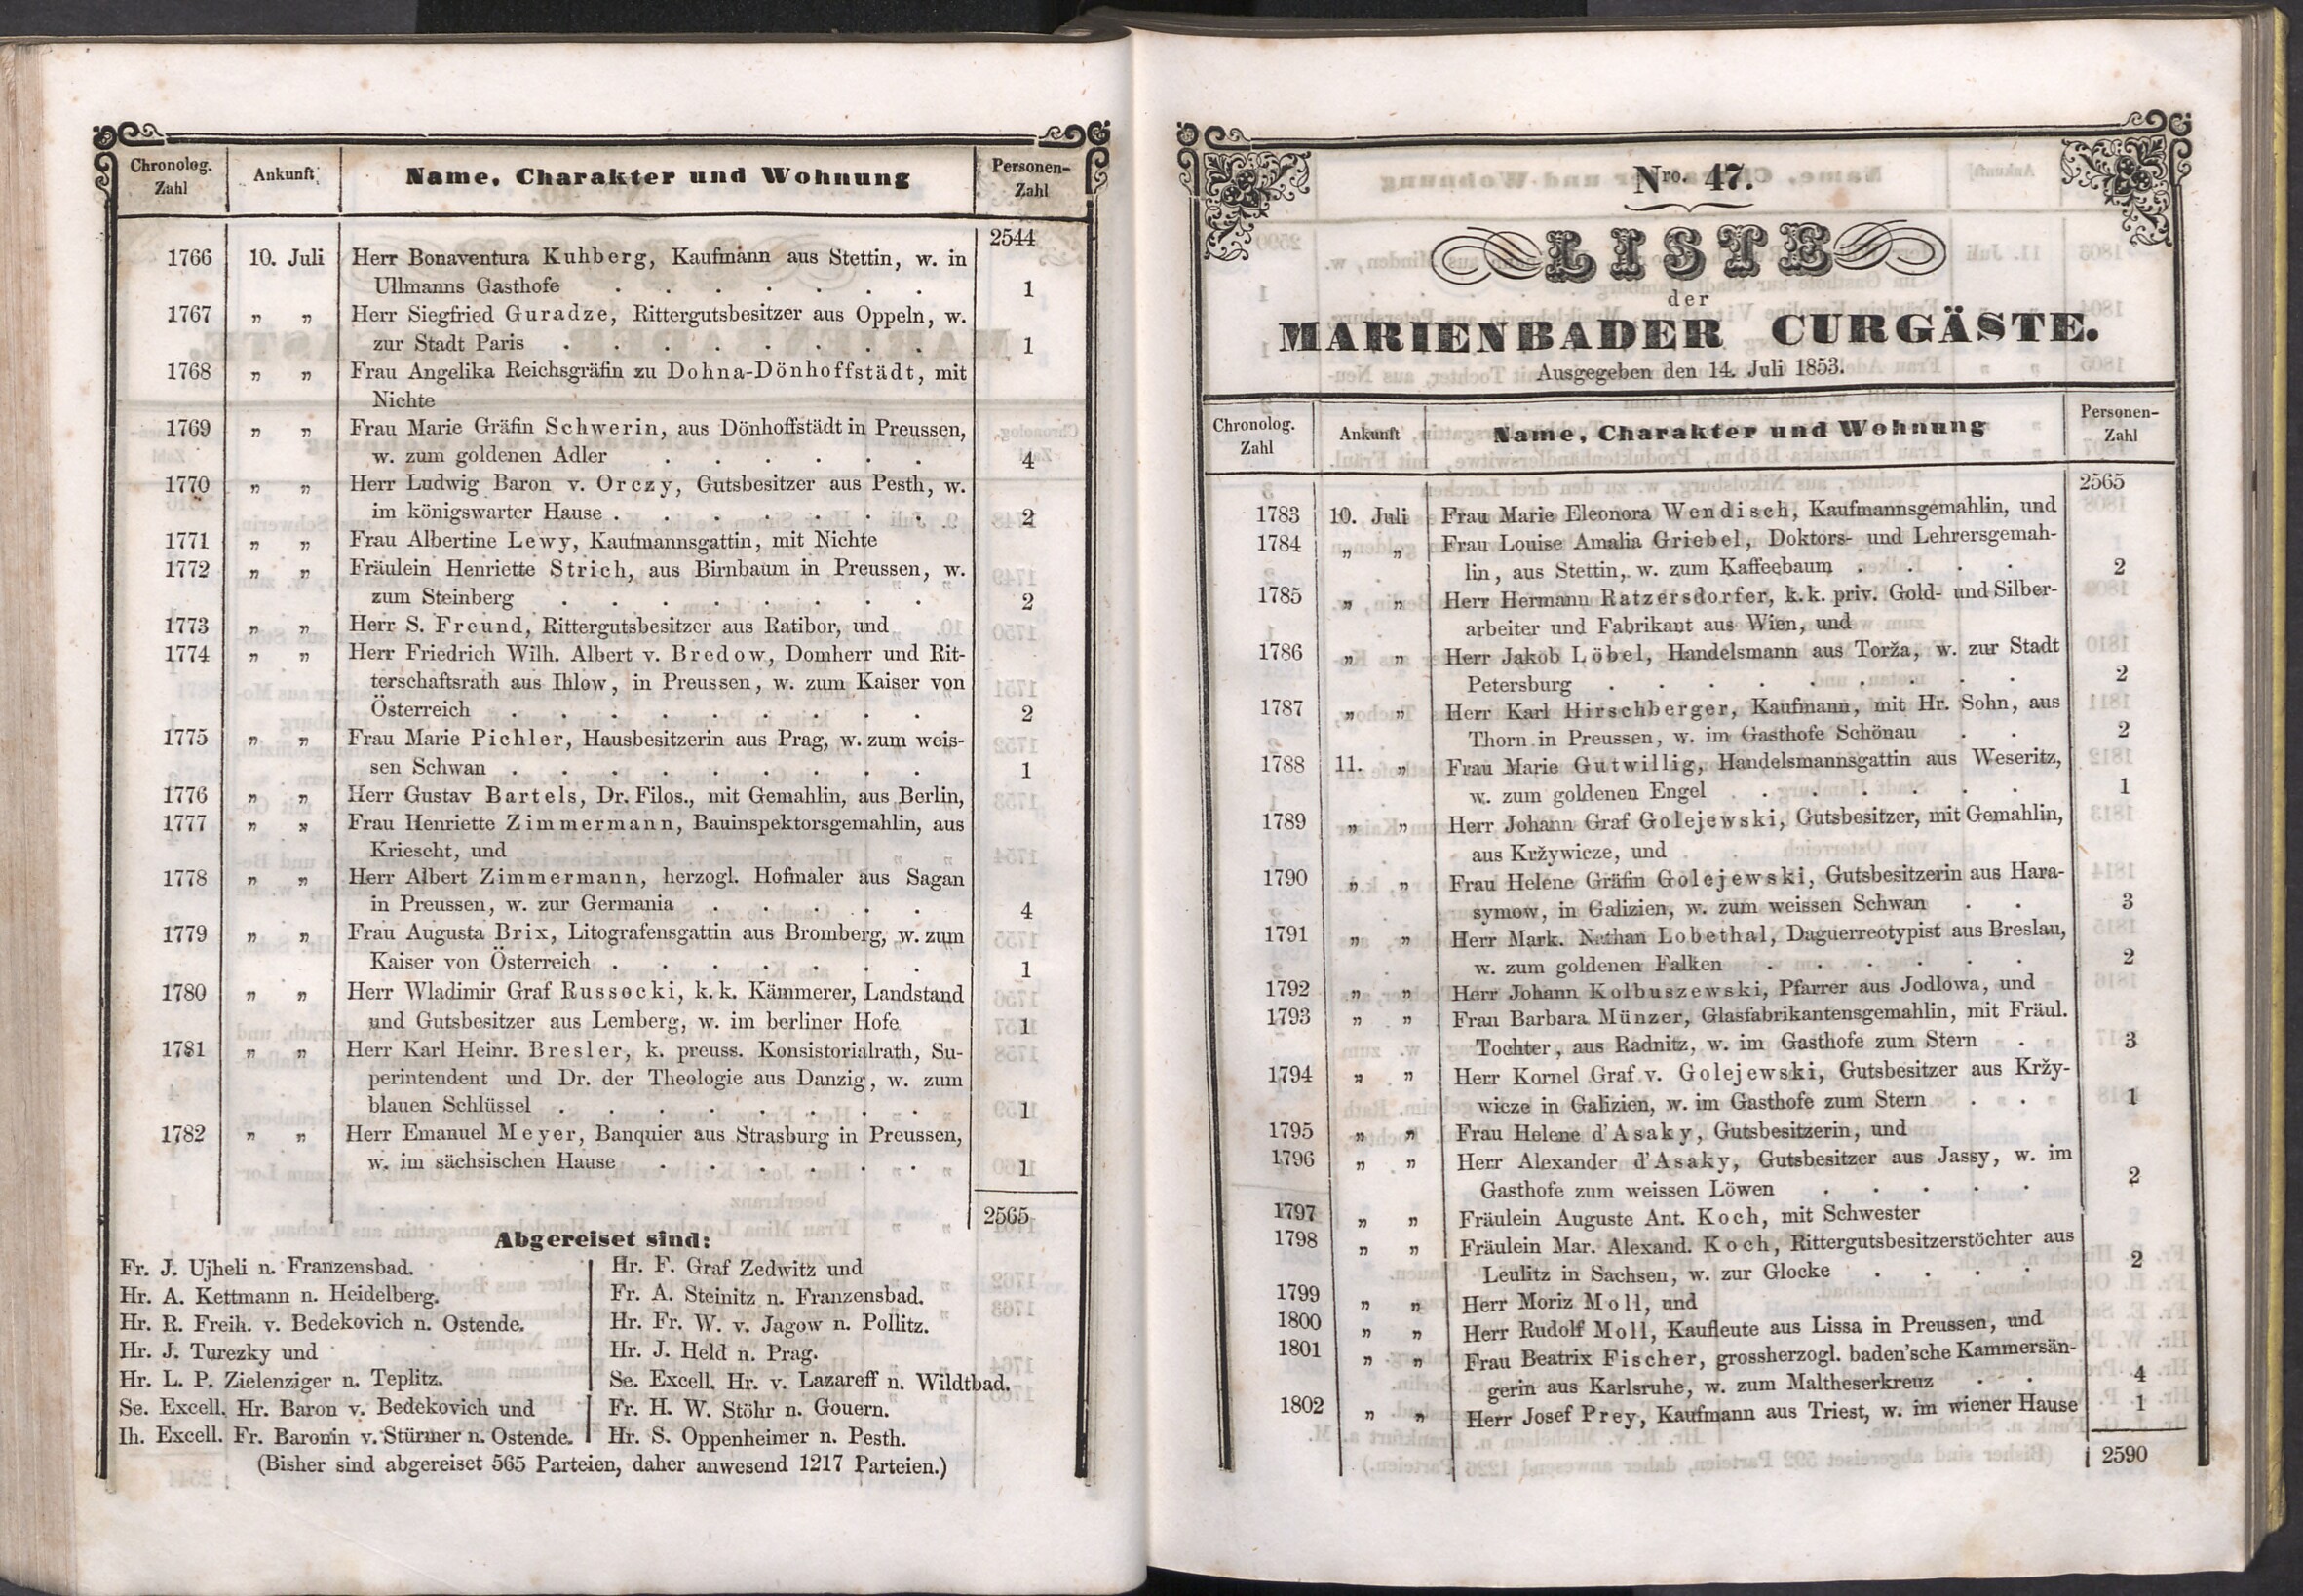 Chronolog. Zahl Ankunft Name, Charakter und Wohnung Personen-Zahl
2544
1766 10. Juli Herr Bonaventura Kuhberg, Kaufmann aus Stettin, w. in
Ullmanns Gasthofe . . . . . . . 1
1767 „ „ Herr Siegfried Guradze, Rittergutsbesitzer aus Oppeln, w.
zur Stadt Paris . . . . . . . . 1
1768 „ „ Frau Angelika Reichsgräfin zu Dohna-Dönhoffstädt, mit
Nichte
1769 „ „ Frau Marie Gräfin Schwerin, aus Dönhoffstädt in Preussen,
w. zum goldenen Adler . . . . . . 4
1770 „ „ Herr Ludwig Baron v. Orczy, Gutsbesitzer aus Pesth, w.
im königswarter Hause . . . . . . . 2
1771 „ „ Frau Albertine Lewy, Kaufmannsgattin, mit Nichte
1772 „ „ Fräulein Henriette Strich, aus Birnbaum in Preussen, w.
zum Steinberg . . . . . . . . 2
1773 „ „ Herr S. Freund, Rittergutsbesitzer aus Ratibor, und
1774 „ „ Herr Friedrich Wilh. Albert v. Bredow, Domherr und Rit-
terschaftsrath aus Ihlow, in Preussen, w. zum Kaiser von
Österreich . . . . . . . . . 2
1775 „ „ Frau Marie Pichler, Hausbesitzerin aus Prag, w. zum weis-
sen Schwan . . . . . . . . . 1
1776 „ „ Herr Gustav Bartels, Dr. Filos., mit Gemahlin, aus Berlin,
1777 „ „ Frau Henriette Zimmermann, Bauinspektorsgemahlin, aus
Kriescht, und
1778 „ „ Herr Albert Zimmermann, herzogl. Hofmaler aus Sagan
in Preussen, w. zur Germania . . . . . 4
1779 „ „ Frau Augusta Brix, Litografensgattin aus Bromberg, w. zum
Kaiser von Österreich . . . . . . . 1
1780 „ „ Herr Wladimir Graf Russocki, k. k. Kämmerer, Landstand
und Gutsbesitzer aus Lemberg, w. im berliner Hofe 1
1781 „ „ Herr Karl Heinr. Bresler, k. preuss. Konsistorialrath, Su-
perintendent und Dr. der Theologie aus Danzig, w. zum
blauen Schlüssel . . . . . . . . 1
1782 „ „ Herr Emanuel Meyer, Banquier aus Strasburg in Preussen,
w. im sächsischen Hause . . . . . . 1
2565
Abgereiset sind:
Fr. J. Ujheli n. Franzensbad.
Hr. A. Kettmann n. Heidelberg.
Hr. R. Freih. v. Bedekovich n. Ostende.
Hr. J. Turezky und
Hr. L. P. Zielenziger n. Teplitz.
Se. Excell. Hr. Baron v. Bedekovich und
Ih. Excell. Fr. Baronin v. Stürmer n. Ostende.
Hr. F. Graf Zedwitz und
Fr. A. Steinitz n. Franzensbad.
Hr. Fr. W. v. Jagow n. Pollitz.
Hr. J. Held n. Prag.
Se. Excell. Hr. v. Lazareff n. Wildtbad.
Fr. H. W. Stöhr n. Gouern.
Hr. S. Oppenheimer n. Pesth.
(Bisher sind abgereiset 565 Parteien, daher anwesend 1217 Parteien.)
Nro. 47.
LISTE
der
MARIENBADER CURGÄSTE.
Ausgegeben den 14. Juli 1853.
Chronolog. Zahl Ankunft Name, Charakter und Wohnung Personen-Zahl
2565
1783 10. Juli Frau Marie Eleonora Wendisch, Kaufmannsgemahlin, und
1784 „ „ Frau Louise Amalia Griebel, Doktors- und Lehrersgemah-
lin, aus Stettin, w. zum Kaffeebaum . . . . 2
1785 „ „ Herr Hermann Ratzersdorfer, k. k. priv. Gold- und Silber-
arbeiter und Fabrikant aus Wien, und
1786 „ „ Herr Jakob Löbel, Handelsmann aus Torža, w. zur Stadt
Petersburg . . . . . . . . . 2
1787 „ „ Herr Karl Hirschberger, Kaufmann, mit Hr. Sohn, aus
Thorn in Preussen, w. im Gasthofe Schönau . . 2
1788 11. „ Frau Marie Gutwillig, Handelsmannsgattin aus Weseritz,
w. zum goldenen Engel . . . . . . 1
1789 „ „ Herr Johann Graf Golejewski, Gutsbesitzer, mit Gemahlin,
aus Kržywicze, und
1790 „ „ Frau Helene Gräfin Golejewski, Gutsbesitzerin aus Hara-
symow, in Galizien, w. zum weissen Schwan . . 3
1791 „ „ Herr Mark. Nathan Lobethal, Daguerreotypist aus Breslau,
w. zum goldenen Falken . . . . . . 2
1792 „ „ Herr Johann Kolbuszewski, Pfarrer aus Jodlowa, und
1793 „ „ Frau Barbara Münzer, Glasfabrikantensgemahlin, mit Fräul.
Tochter, aus Radnitz, w. im Gasthofe zum Stern . . 3
1794 „ „ Herr Kornel Graf v. Golejewski, Gutsbesitzer aus Kržy-
wicze in Galizien, w. im Gasthofe zum Stern . . . 1
1795 „ „ Frau Helene d'Asaky, Gutsbesitzerin, und
1796 „ „ Herr Alexander d'Asaky, Gutsbesitzer aus Jassy, w. im
Gasthofe zum weissen Löwen . . . . . 2
1797 „ „ Fräulein Auguste Ant. Koch, mit Schwester
1798 „ „ Fräulein Mar. Alexand. Koch, Rittergutsbesitzerstöchter aus
Leulitz in Sachsen, w. zur Glocke . . . . 2
1799 „ „ Herr Moriz Moll, und
1800 „ „ Herr Rudolf Moll, Kaufleute aus Lissa in Preussen, und
1801 „ „ Frau Beatrix Fischer, grossherzogl. baden'sche Kammersän-
gerin aus Karlsruhe, w. zum Maltheserkreuz . . 4
1802 „ „ Herr Josef Prey, Kaufmann aus Triest, w. im wiener Hause 1
2590